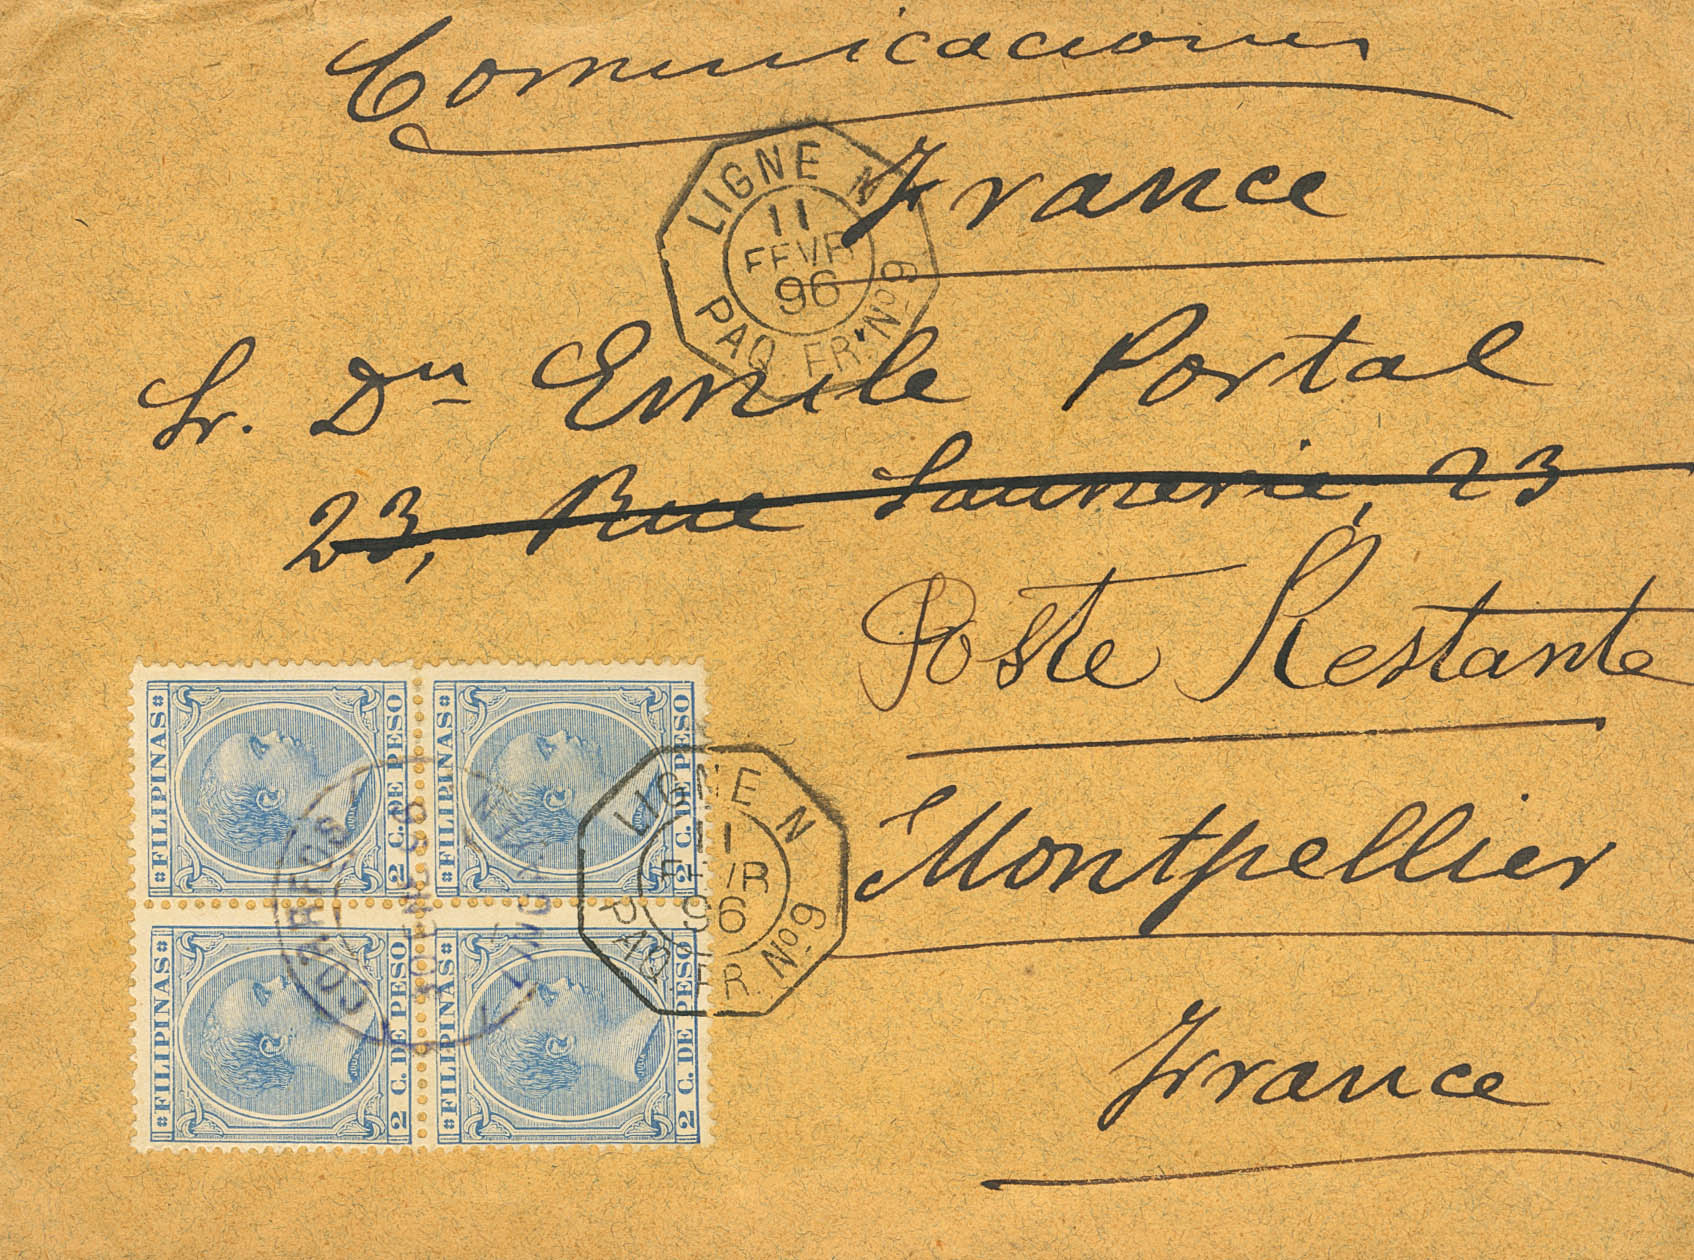 Comunicaciones
France
LIGNE N
11
FEVR
96
PAQ. FR. No 9
Sr. Dn Emile Portal
23, Rue Saunerie, 23
Poste Restante
Montpellier
France
FILIPINAS
2 C. DE PESO
FILIPINAS
2 C. DE PESO
FILIPINAS
2 C. DE PESO
FILIPINAS
2 C. DE PESO
CORREOS
LINGAYEN
LIGNE N
11
FEVR
96
PAQ. FR. No 9